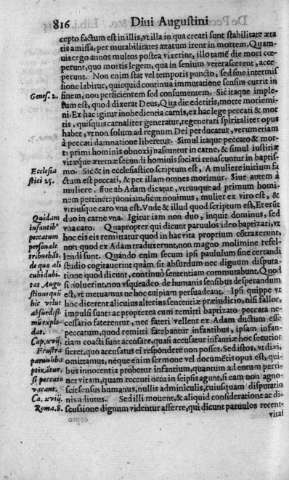 816 Diui Augustini
cepto factum est in illis, vt illa in qua creati sunt stabilitate æta
tis amissa, per mutabilitates ætatum irent in mortem. Quam
uis ergo annos multos postea vixerint, illo tamen die mori coe
perunt, quo mortis legem, qua in senium veterascerent, acce
perunt. Non enim stat vel temporis puncto, sed sine intermis
sione labitur, quicquid continua immutatione sensim currit in
Genes. 2. finem, non perficientem sed consumentem. Sic itaque imple
tum est, quod dixerat Deus, Qua die ederitis, morte moriemi
ni. Ex hac igitur inobedientia carnis, ex hac lege peccati & mor
tis, quisquis carnaliter generatur, regenerari spiritaliter opus
habet, vt non solum ad regnum Dei perducatur, verum etiam
à peccati damnatione liberetur. Simul itaque peccato & mor
ti primi hominis obnoxij nascuntur in carne, & simul iustitiæ
vitæque æternæ secundi hominis sociati renascuntur in baptis-
Ecclesia mo. Sic & in ecclesiastico scriptum est, A muliere initium fa
stici 25. ctum est peccati, & per illam omnes morimur. Siue autem à
muliere, siue ab Adam dicatur, vtrunque ad primum homi-
nem pertinet: quoniam, sicut nouimus, mulier ex viro est, &
vtriusque caro vna est. Vnde & illud quod scriptum est, Et erũt
Quidam duo in carne vna. Igitur iam non duo, inquit dominus, sed
vna caro. Quapropter qui dicunt paruulos ideo baptizari, vt
peccatum hoc eis remittatur quod in hac vita proprium contraxerunt,
non quod ex Adam traduxerunt, non magno molimine refel-
lendi sunt. Quando enim secum ipsi paululum sine certandi
de qua studio cogitauerint quàm sit absurdum nec dignum disputa-
tione quod dicunt, continuò sententiam commutabunt. Quod
si noluerint, non vsqueadeo de humanis sensibus desperandum
est, vt metuamus ne hoc cuipiam persuadeant. Ipsi quippe vt
hoc dicerent alicuius alterius sententiæ præiudicio, nisi fallor,
impulsi sunt: ac propterea cum remitti baptizato peccata ne-
cessario faterentur, nec fateri vellent ex Adam ductum esse
peccatum, quod remitti fatebantur infantibus, ipsam infan-
Cap. xvij. tiam coacti sunt accusare, quasi accusator infantiæ hoc securior
Frustra fieret, quo accusatus ei respondere non posset. Sed istos, vt dixi,
paruulos omittamus, neque enim sermone vel documentis opus est, qui-
bus innocentia probetur infantium, quantum ad eorum pertinet
si peccato vitam, quam recenti ortu in seipsis agunt, si eam non agno-
vacant. scit sensus humanus, nullis adminiculis, cuiusquam disputatio
Ca. xviij. nis adiutus. Sed illi mouent, & aliquid consideratione ac di-
Roma. 8. scussione dignum videntur afferre, qui dicunt paruulos recenti
vitæ